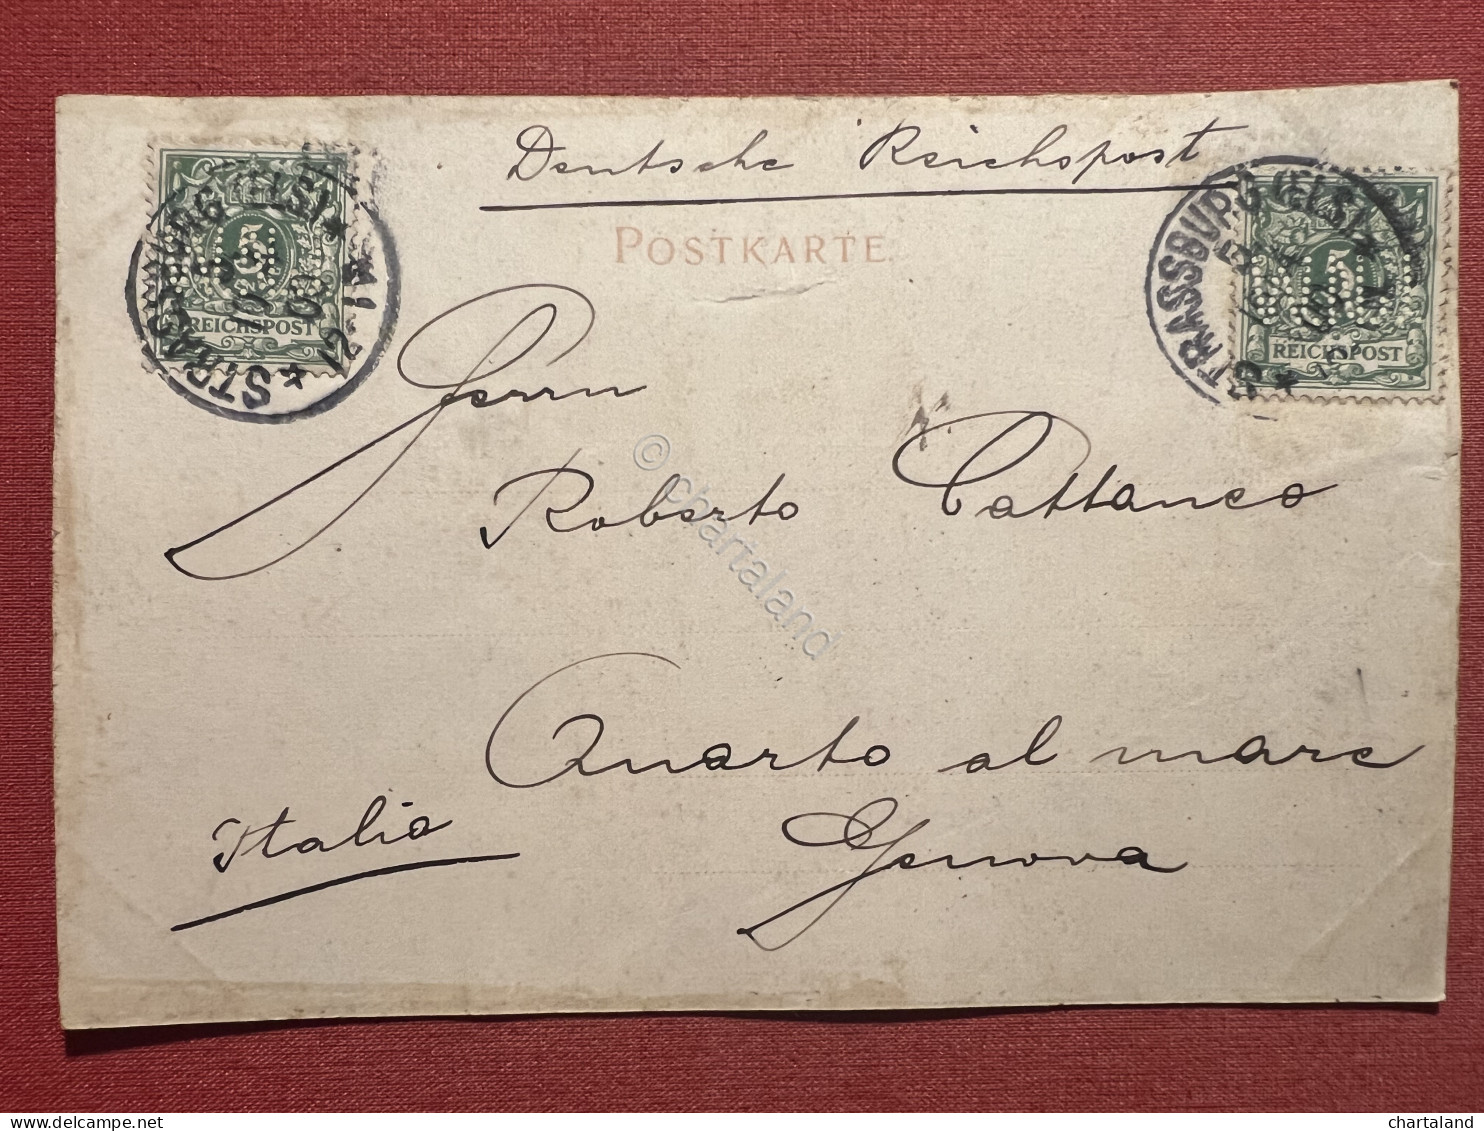 Deutsche Reichspost
POSTKARTE
STRASSBURG (ELS)
5
REICHSPOST
STRASSBURG (ELS)
5
REICHSPOST
Herrn
Roberto Cattaneo
© Chartaland
Quarto al mare
Italia
Genova
chartaland